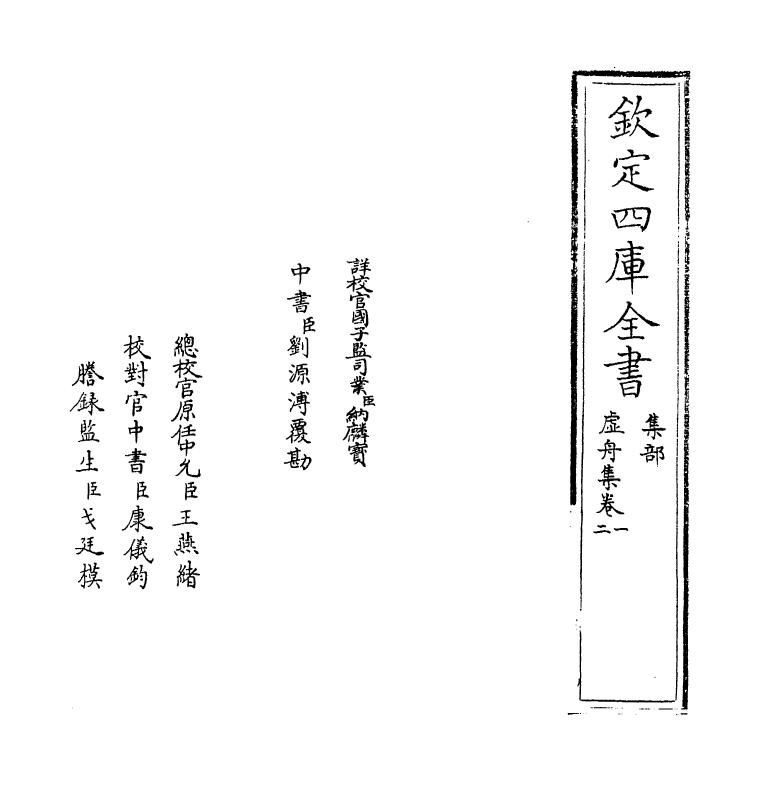 欽定四庫全書
集部
虛舟集卷一二
詳校官國子監司業臣納麟寶
中書臣劉源溥覆勘
總校官原任中允臣王燕緒
校對官中書臣康儀鈞
謄録監生臣戈廷模